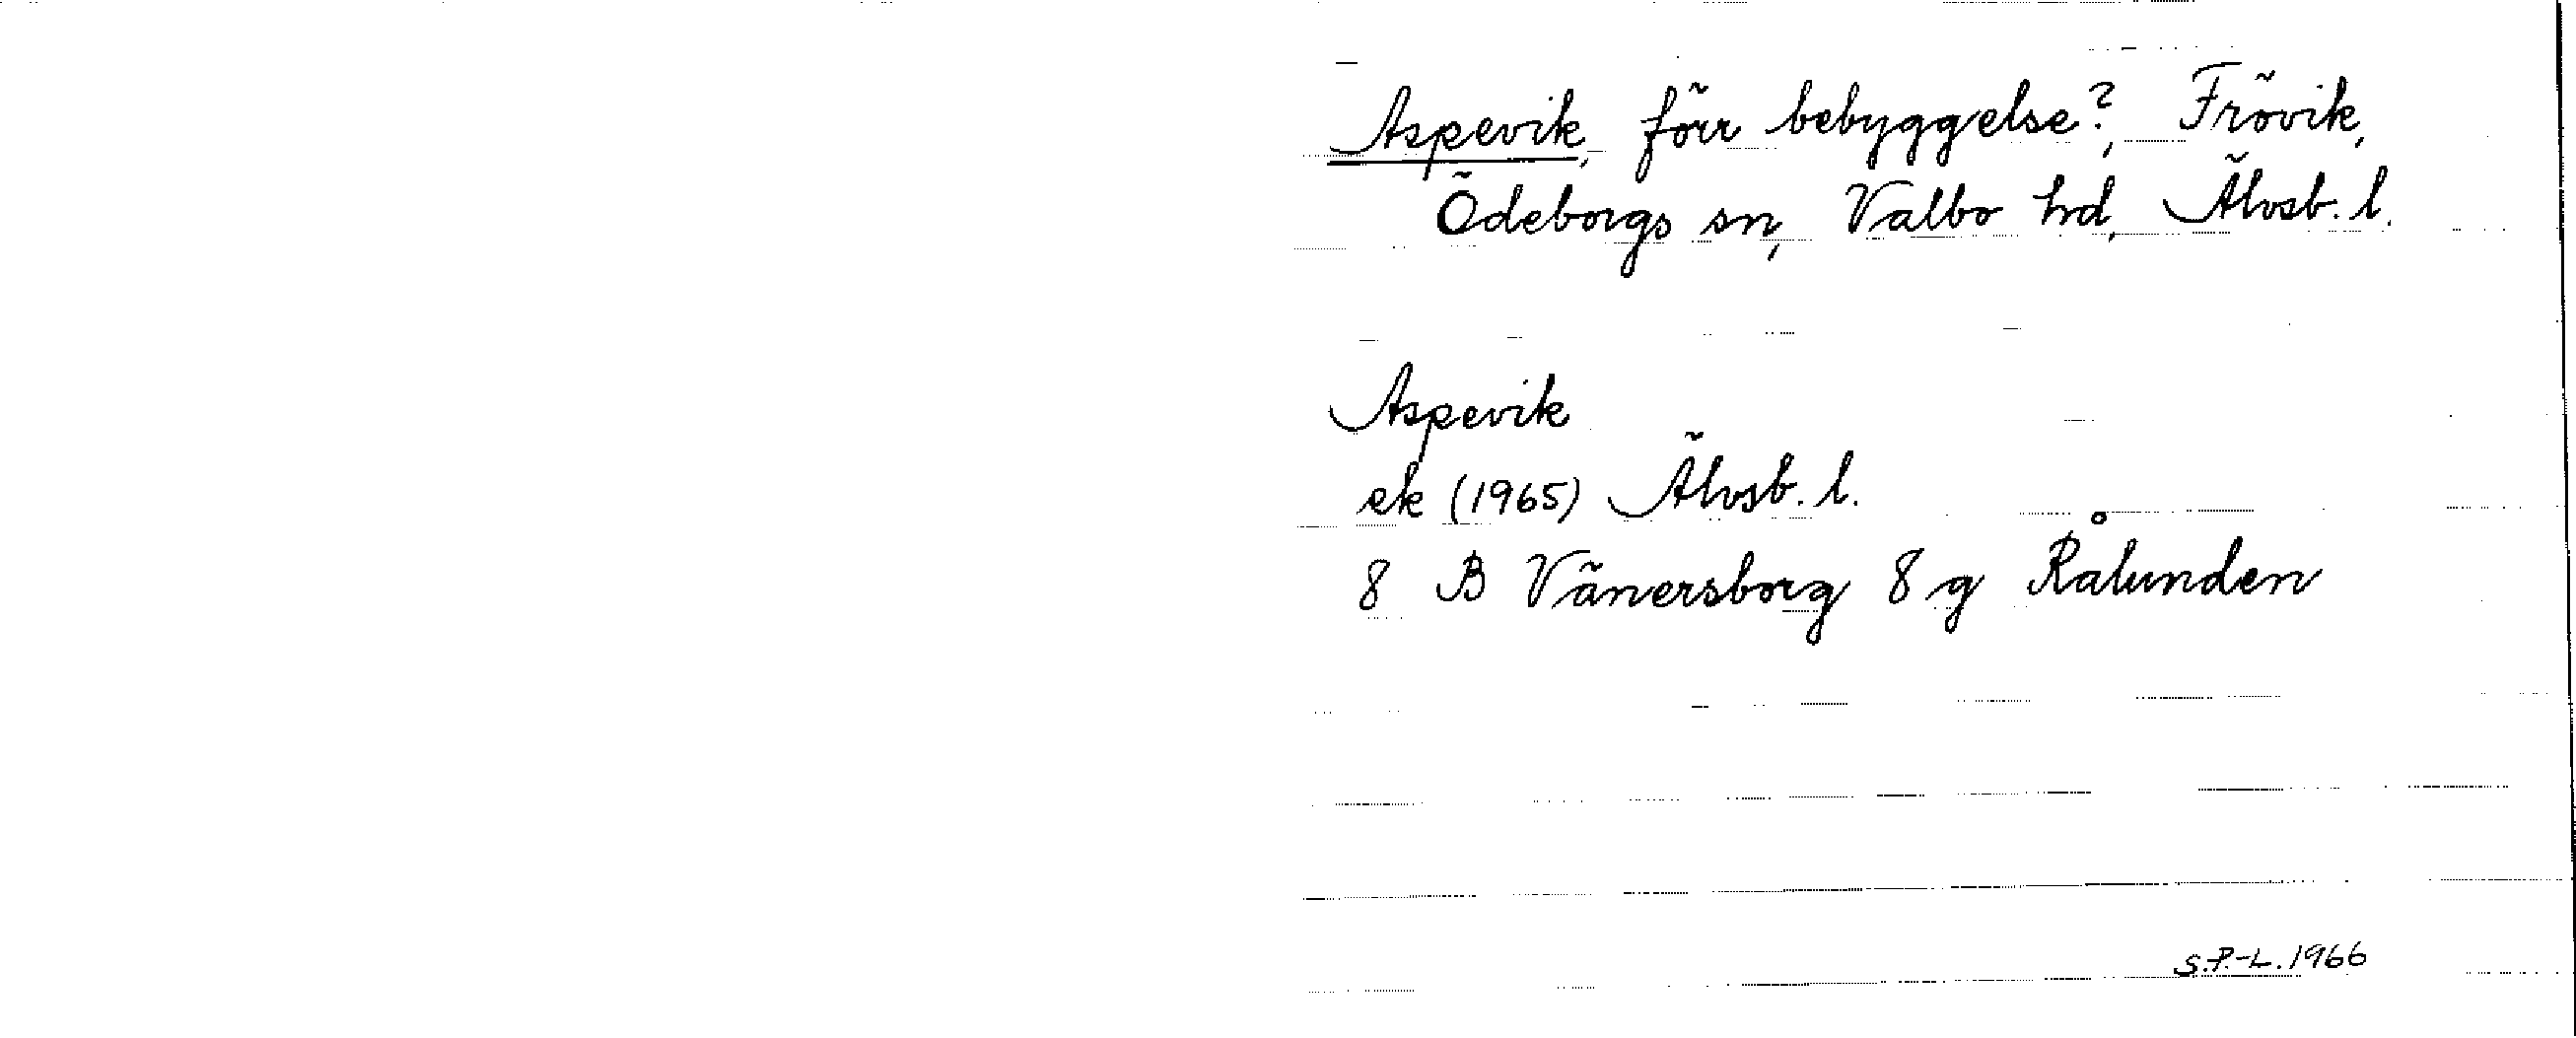 Aspevik, förr bebyggelse?, Frövik,
Ödeborgs sn, Valbo hd, Älvsb. l.
Aspevik
ek (1965) Älvsb. l.
8 B Vänersborg 8 g Rålunden
S.P.-L. 1966